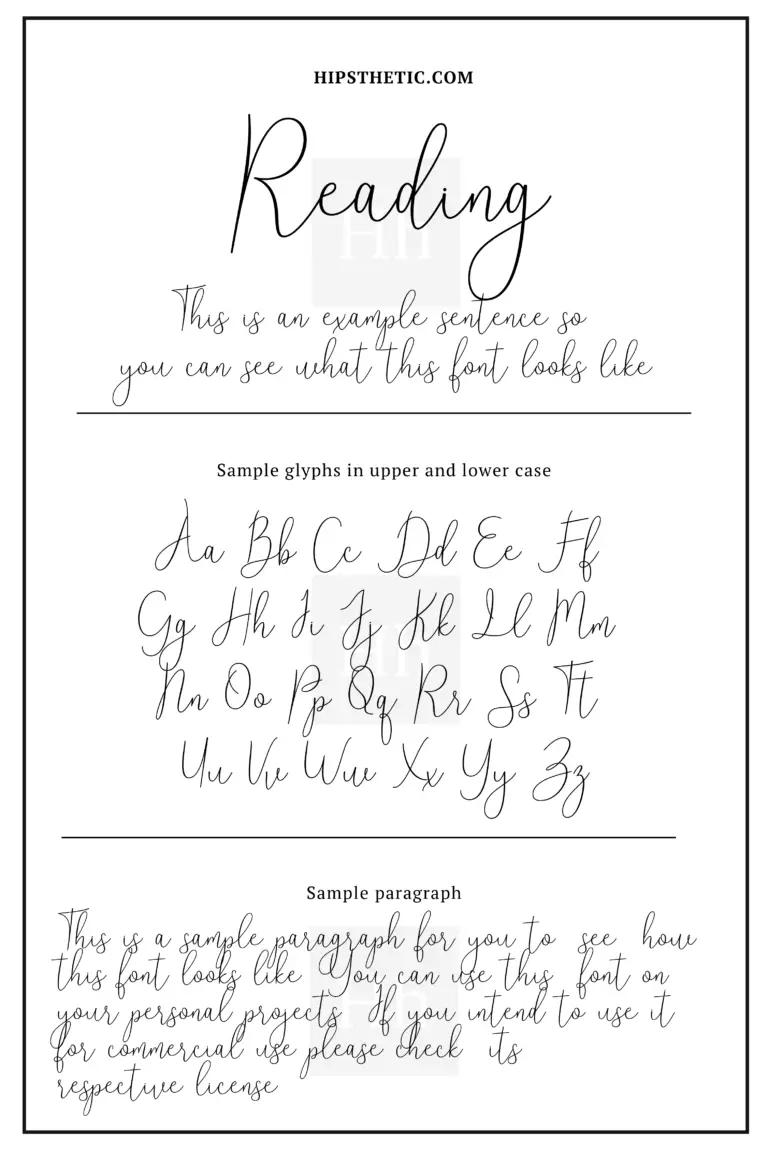 HIPSTHETIC.COM
Reading
This is an example sentence so
you can see what this font looks like
Sample glyphs in upper and lower case
Aa Bb Cc Dd Ee Ff
Gg Hh Ii Jj Kk Ll Mm
Nn Oo Pp Qq Rr Ss Tt
Uu Vv Ww Xx Yy Zz
Sample paragraph
This is a sample paragraph for you to see how
this font looks like You can use this font on
your personal projects If you intend to use it
for commercial use please check its
respective license
Hn
Hn
Hn